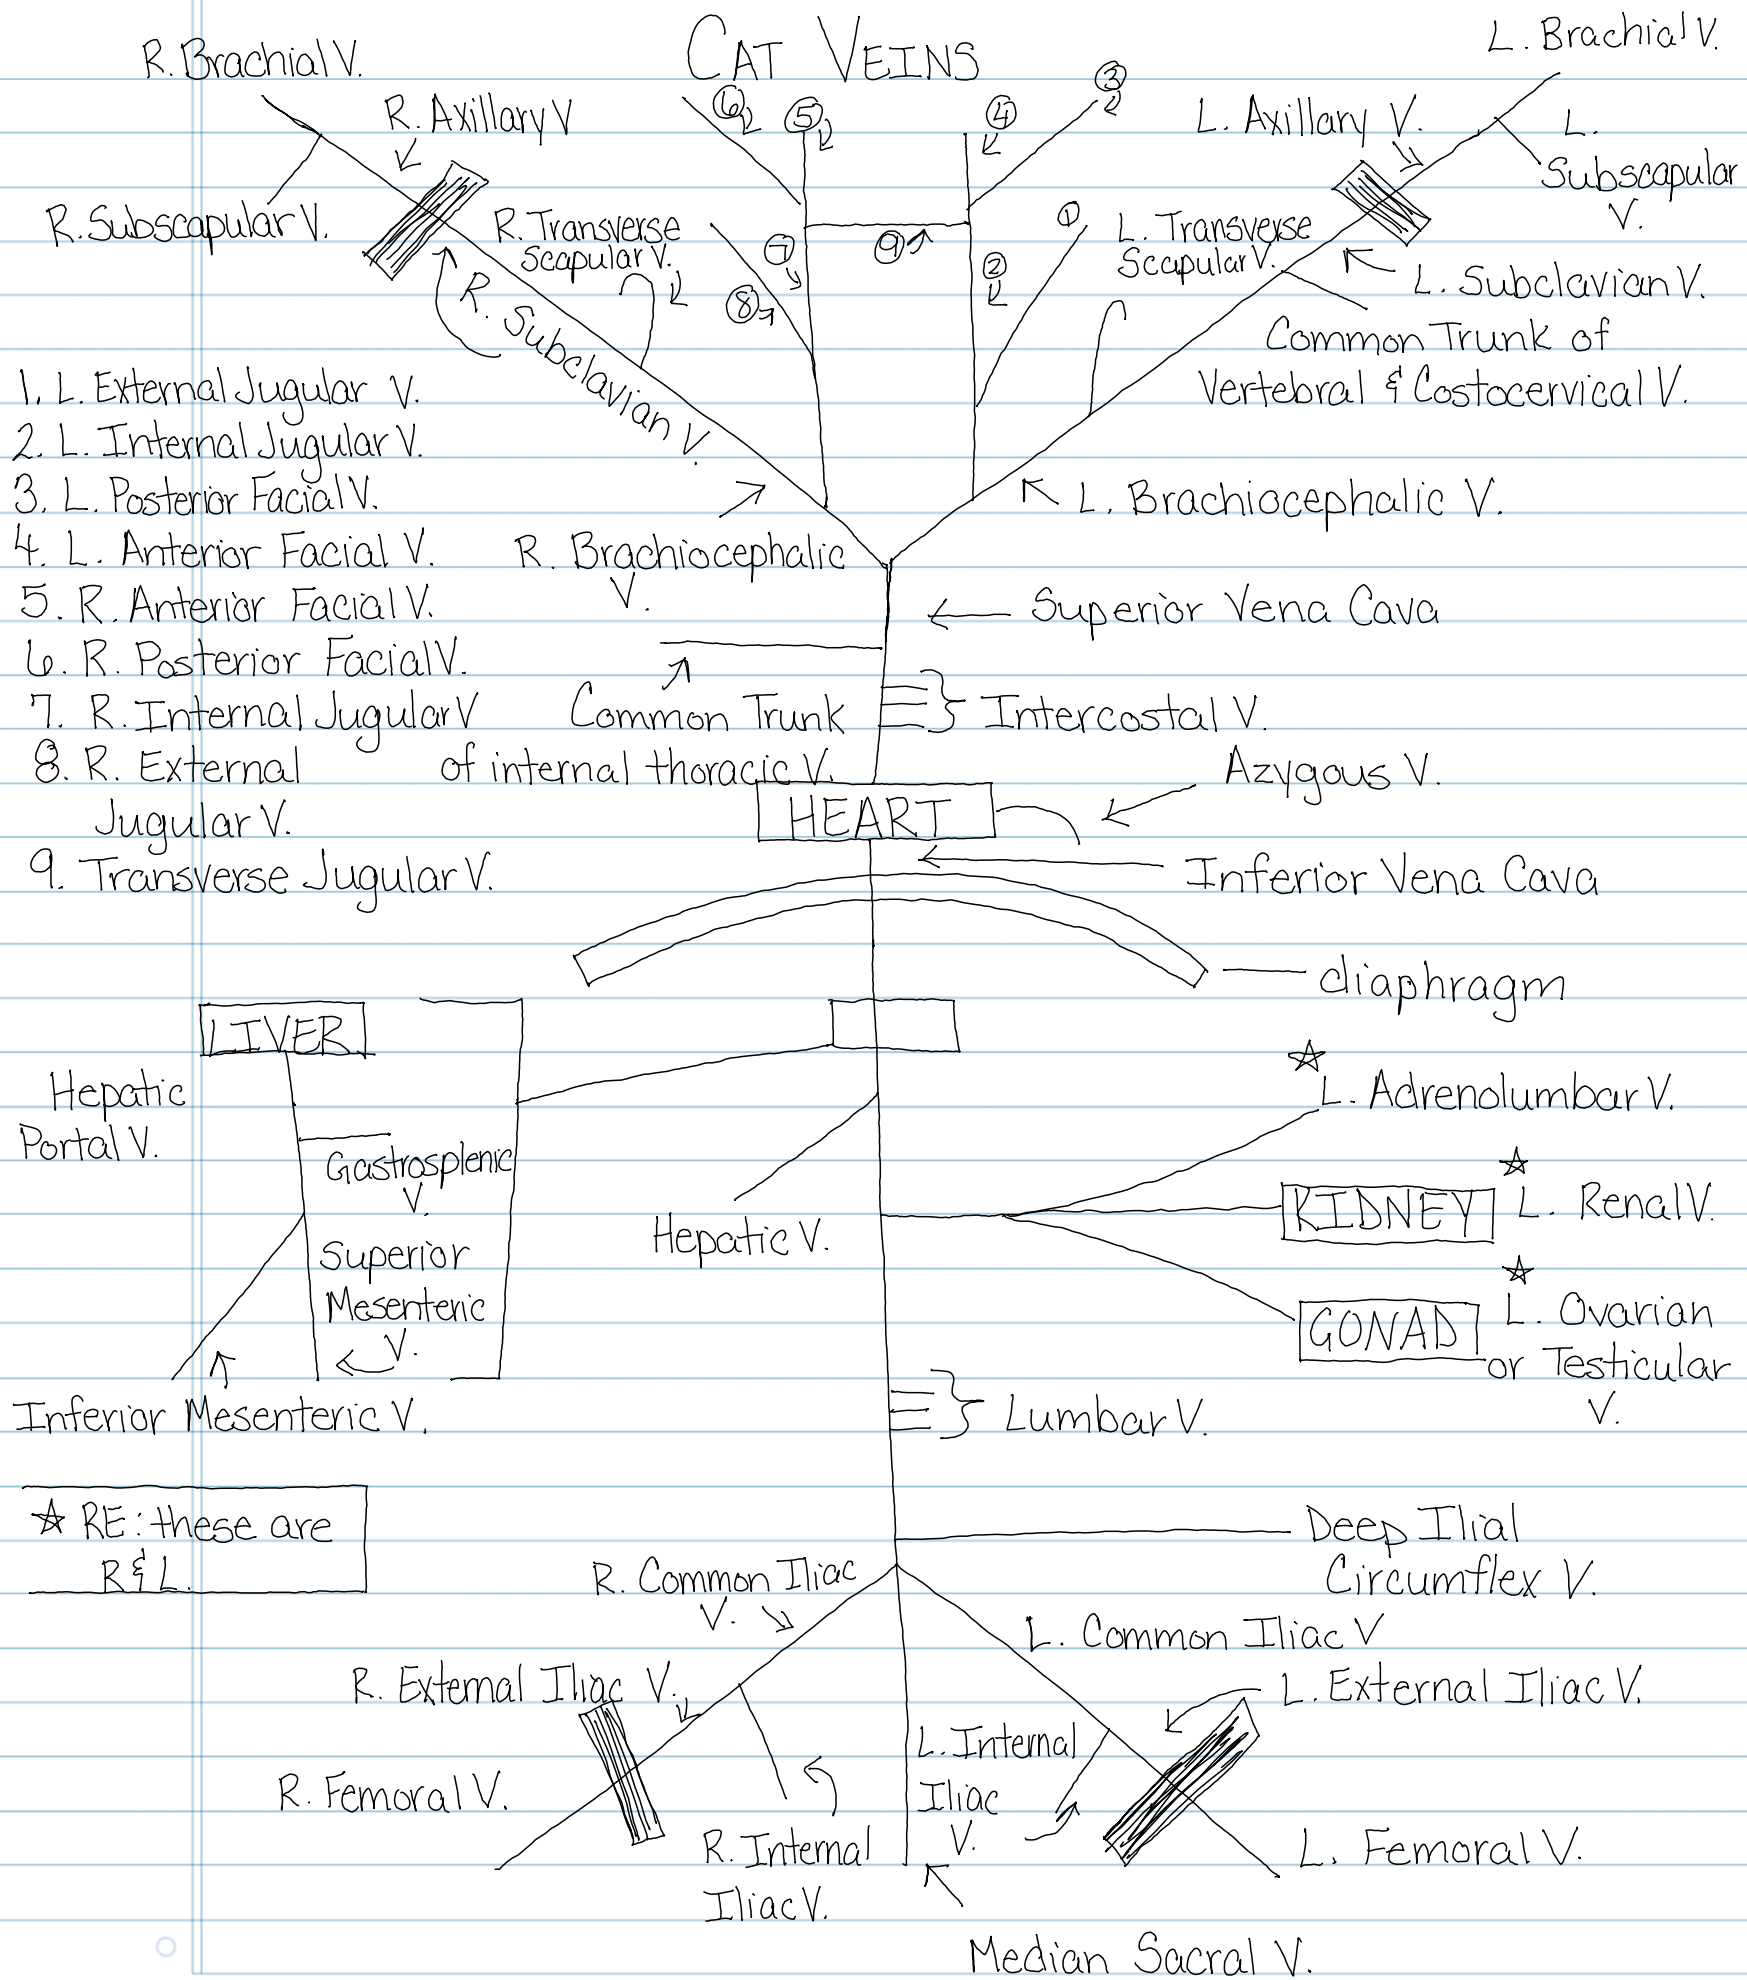 CAT VEINS
R. Brachial V.
L. Brachial V.
R. Axillary V
⑥
⑤
④
③
L. Axillary V.
L.
Subscapular
V.
R. Subscapular V.
R. Transverse
Scapular V.
⑦
⑧
⑨
②
①
L. Transverse
Scapular V.
L. Subclavian V.
R. Subclavian V.
Common Trunk of
Vertebral & Costocervical V.
1. L. External Jugular V.
2. L. Internal Jugular V.
3. L. Posterior Facial V.
4. L. Anterior Facial V.
5. R. Anterior Facial V.
6. R. Posterior Facial V.
7. R. Internal Jugular V
8. R. External
Jugular V.
9. Transverse Jugular V.
L. Brachiocephalic V.
R. Brachiocephalic
V.
Superior Vena Cava
Common Trunk
of internal thoracic V.
Intercostal V.
Azygous V.
HEART
Inferior Vena Cava
diaphragm
LIVER
Hepatic
Portal V.
Gastrosplenic
V.
Superior
Mesenteric
V.
Inferior Mesenteric V.
Hepatic V.
L. Adrenolumbar V.
KIDNEY
L. Renal V.
GONAD
L. Ovarian
or Testicular
V.
Lumbar V.
☆ RE: these are
R & L.
Deep Ilial
Circumflex V.
R. Common Iliac
V.
L. Common Iliac V
R. External Iliac V.
L. External Iliac V.
R. Femoral V.
L. Internal
Iliac
V.
R. Internal
Iliac V.
L. Femoral V.
Median Sacral V.